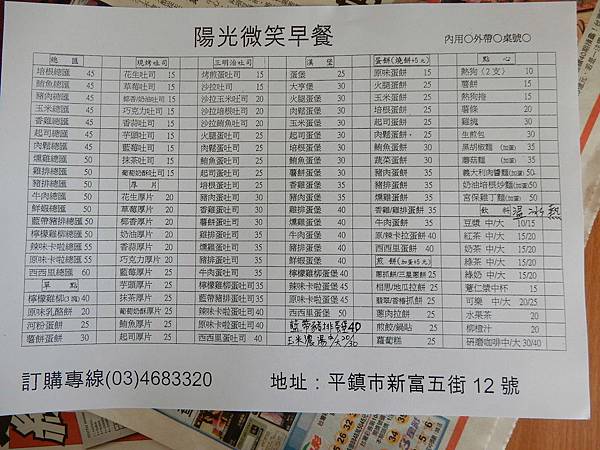 陽光微笑早餐
內用○外帶○桌號○
總 匯
培根總匯 45
鮪魚總匯 45
豬肉總匯 45
玉米總匯 45
香雞總匯 45
起司總匯 45
肉鬆總匯 45
燻雞總匯 50
雞排總匯 50
豬排總匯 50
牛肉總匯 50
鮮蝦總匯 50
藍帶豬排總匯 50
檸檬雞柳總匯 50
辣味卡啦總匯 55
原味卡啦總匯 55
西西里總匯 60
單 點
檸檬雞柳(3塊) 40
原味乳酪餅 20
河粉蛋餅 25
薯餅蛋餅 30
現烤吐司
花生吐司 15
草莓吐司 15
椰香/奶油吐司 15
巧克力吐司 15
香蒜吐司 15
芋頭吐司 15
藍莓吐司 15
抹茶吐司 15
葡萄奶酥吐司 15
厚 片
花生厚片 20
草莓厚片 20
椰香厚片 20
奶油厚片 20
香蒜厚片 20
巧克力厚片 20
藍莓厚片 25
芋頭厚片 25
抹茶厚片 25
葡萄奶酥厚片 25
鮪魚厚片 25
起司厚片 25
三明治吐司
煎蛋吐司 15
沙拉吐司 15
沙拉玉米吐司 20
沙拉培根吐司 20
肉鬆蛋吐司 20
火腿蛋吐司 25
玉米蛋吐司 25
鮪魚蛋吐司 25
起司蛋吐司 25
培根蛋吐司 25
豬肉蛋吐司 25
香雞蛋吐司 30
薯餅蛋吐司 30
雞排蛋吐司 35
燻雞蛋吐司 35
豬排蛋吐司 35
牛肉蛋吐司 35
檸檬雞柳蛋吐司 35
藍帶豬排蛋吐司 35
辣味卡啦蛋吐司 40
原味卡啦蛋吐司 40
西西里蛋吐司 40
漢 堡
蛋堡 25
大亨堡 30
火腿蛋堡 30
鮪魚蛋堡 30
肉鬆蛋堡 30
起司蛋堡 30
培根蛋堡 30
玉米蛋堡 30
薯餅蛋堡 30
豬肉蛋堡 30
香雞蛋堡 30
雞排蛋堡 40
燻雞蛋堡 40
豬排蛋堡 40
牛肉蛋堡 40
鮮蝦蛋堡 40
檸檬雞柳蛋堡 40
辣味卡啦蛋堡 50
原味卡啦蛋堡 50
西西里蛋堡 50
藍帶豬排蛋堡40
玉米濃湯中/大20/30
蛋餅(燒餅+5元)
原味蛋餅 20
火腿蛋餅 25
玉米蛋餅 25
培根蛋餅 25
起司蛋餅 25
肉鬆蛋餅 25
鮪魚蛋餅 30
蔬菜蛋餅 30
豬肉蛋餅 30
燻雞蛋餅 35
香雞/雞排蛋餅 35
牛肉蛋餅 35
原/辣卡拉蛋餅 40
西西里蛋餅 40
煎 餅(加蛋+5元)
蔥抓餅/三星蔥餅 25
相思/地瓜拉餅 25
翡翠/香椿抓餅 25
蔥肉拉餅 25
煎餃/鍋貼 25
蘿蔔糕 25
點 心
熱狗(2支) 10
薯餅 15
熱狗捲 15
薯條 20
雞塊 30
生煎包 30
黑胡椒麵(加蛋) 35
蘑菇麵 (加蛋) 35
義大利肉醬麵(加蛋)50
奶油培根炒麵(加蛋)50
宮保雞丁麵(加蛋)50
飲 料 溫 冰 熱
豆漿 中/大 10/15
紅茶 中/大 15/20
奶茶 中/大 15/20
綠茶 中/大 15/20
綠奶 中/大 15/20
薏仁漿中杯 15
可樂 中/大 20/25
水果茶 20
柳橙汁 20
研磨咖啡中/大 30/40
訂購專線(03)4683320
地址:平鎮市新富五街12號